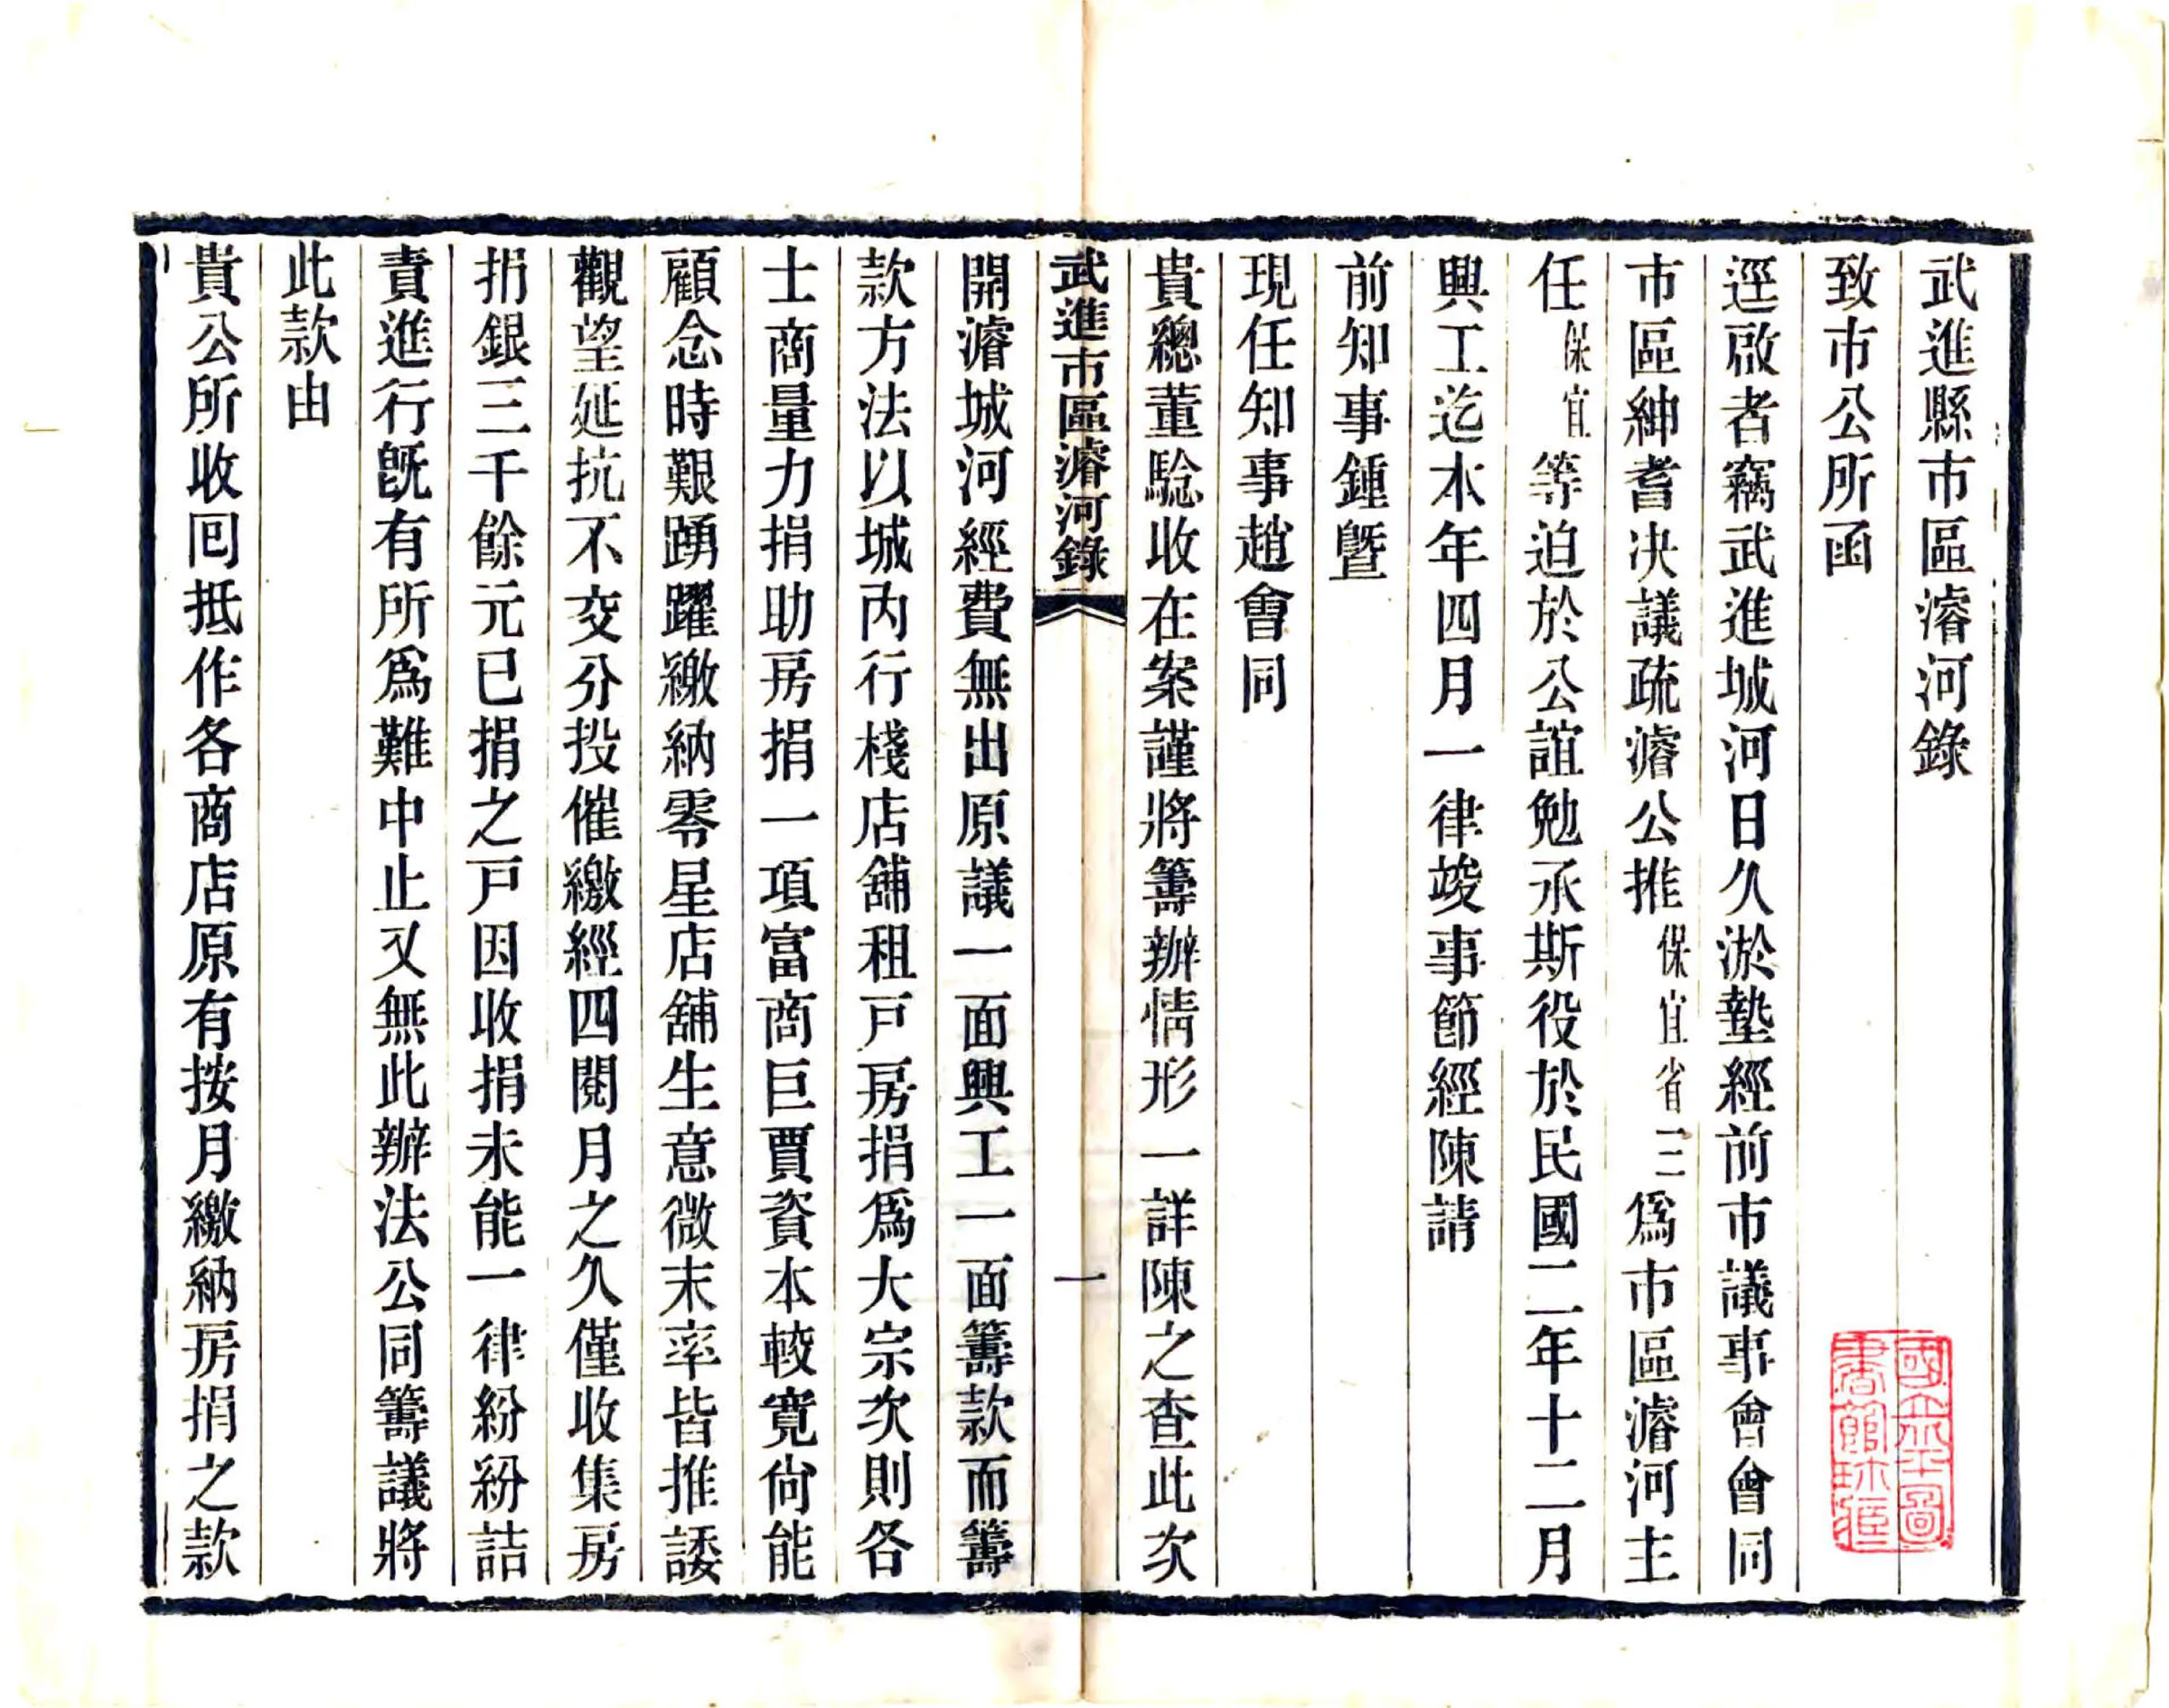 武進縣市區濬河錄
致市公所函
逕啟者竊武進城河日久淤墊經前市議事會會同
市區紳耆决議疏濬公推保宜省三爲市區濬河主
任保宜等迫於公誼勉承斯役於民國二年十二月
興工迄本年四月一律竣事節經陳請
前知事鍾曁
現任知事趙會同
貴總董騐收在案謹將籌辦情形一詳陳之查此次
武進市區濬河錄
一
開濬城河經費無出原議一面興工一面籌款而籌
款方法以城內行棧店舖租戸房捐爲大宗次則各
士商量力捐助房捐一項富商巨賈資本較寬尙能
顧念時艱踴躍繳納零星店舖生意微末率皆推諉
觀望延抗不交分投催繳經四閱月之久僅收集房
捐銀三千餘元已捐之戸因收捐未能一律紛紛詰
責進行旣有所爲難中止又無此辦法公同籌議將
此款由
貴公所收回抵作各商店原有按月繳納房捐之款
國立北平圖
書館珍藏